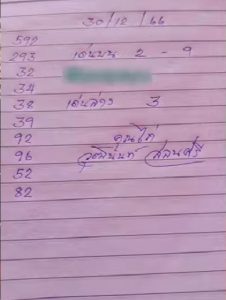 30/12/66
592
293 เด่นบน 2 - 9
32
34
38 เด่นล่าง 3
39
92 คุณไก่
96
52
82